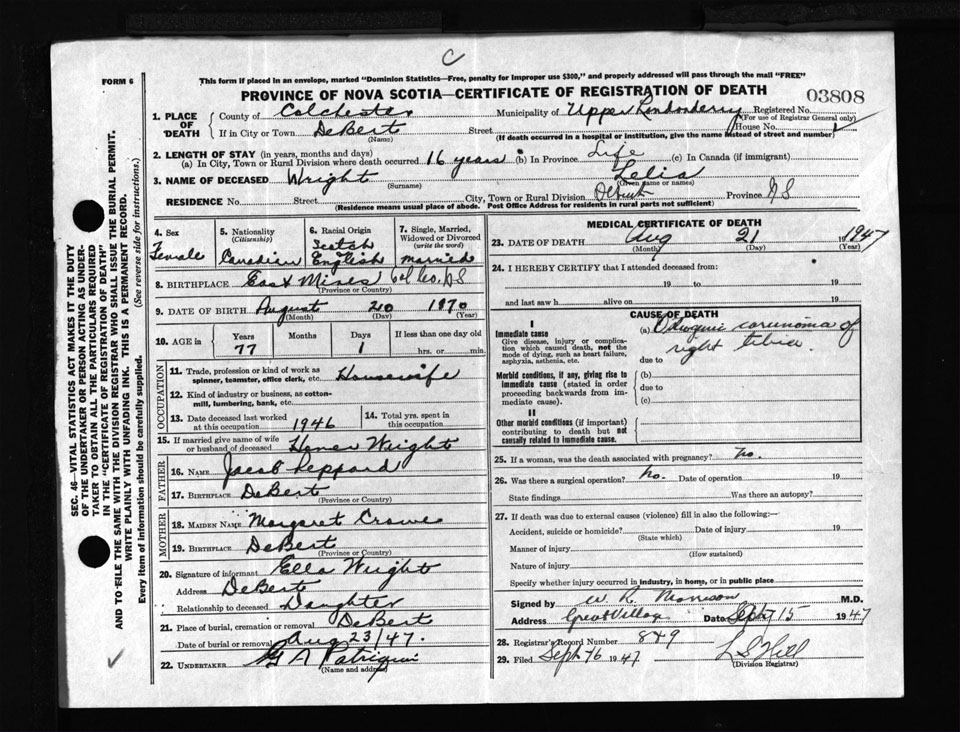 C
FORM 6
This form if placed in an envelope, marked "Dominion Statistics—Free, penalty for improper use $300," and properly addressed will pass through the mail "FREE"
PROVINCE OF NOVA SCOTIA—CERTIFICATE OF REGISTRATION OF DEATH
03808
1. PLACE OF DEATH County of Colchester Municipality of Upper Londonderry Registered No.
(For use of Registrar General only)
If in City or Town DeBert Street House No.
(Name) (If death occurred in a hospital or institution, give the name instead of street and number)
2. LENGTH OF STAY (in years, months and days)
(a) In City, Town or Rural Division where death occurred 16 years (b) In Province Life (c) In Canada (if immigrant)
3. NAME OF DECEASED Wright Lelia
(Surname) (Given name or names)
RESIDENCE No. Street City, Town or Rural Division Debert Province NS
(Residence means usual place of abode. Post Office Address for residents in rural parts not sufficient)
4. Sex Female
5. Nationality (Citizenship) Canadian
6. Racial Origin Scotch English
7. Single, Married, Widowed or Divorced (write the word) married
8. BIRTHPLACE East Mines Col Co, NS
(Province or Country)
9. DATE OF BIRTH August 20 1870
(Month) (Day) (Year)
10. AGE in Years 77 Months Days 1 If less than one day old hrs. or min.
OCCUPATION
11. Trade, profession or kind of work as spinner, teamster, office clerk, etc. Housewife
12. Kind of industry or business, as cotton-mill, lumbering, bank, etc.
13. Date deceased last worked at this occupation 1946
14. Total yrs. spent in this occupation
15. If married give name of wife or husband of deceased Wright
FATHER
16. NAME Jacob Peppard
17. BIRTHPLACE DeBert
(Province or Country)
MOTHER
18. MAIDEN NAME Margaret Crowe
19. BIRTHPLACE DeBert
(Province or Country)
20. Signature of informant Ella Wright
Address DeBert
Relationship to deceased Daughter
21. Place of burial, cremation or removal DeBert
Date of burial or removal Aug 23/47.
22. UNDERTAKER Patriquin
(Name and address)
MEDICAL CERTIFICATE OF DEATH
23. DATE OF DEATH Aug 21 1947
(Month) (Day) (Year)
24. I HEREBY CERTIFY that I attended deceased from:
19 to 19
and last saw h alive on 19
CAUSE OF DEATH
I
Immediate cause
Give disease, injury or complication which caused death, not the mode of dying, such as heart failure, asphyxia, asthenia, etc.
(a) carcinoma of
right tibia
due to
Morbid conditions, if any, giving rise to immediate cause (stated in order proceeding backwards from immediate cause).
(b)
due to
(c)
II
Other morbid conditions (if important) contributing to death but not causally related to immediate cause.
25. If a woman, was the death associated with pregnancy? no.
26. Was there a surgical operation? no. Date of operation 19
State findings Was there an autopsy?
27. If death was due to external causes (violence) fill in also the following:—
Accident, suicide or homicide? Date of injury 19
(State which)
Manner of injury
(How sustained)
Nature of injury
Specify whether injury occurred in industry, in home, or in public place
Signed by W. R. Morrison M.D.
Address Great Village Date Sept 15 1947
28. Registrar's Record Number 849
29. Filed Sept 16 1947 L S Hill
(Division Registrar)
SEC. 46—VITAL STATISTICS ACT MAKES IT THE DUTY
OF THE UNDERTAKER OR PERSON ACTING AS UNDER-
TAKER TO OBTAIN ALL THE PARTICULARS REQUIRED
IN THE "CERTIFICATE OF REGISTRATION OF DEATH"
AND TO FILE THE SAME WITH THE DIVISION REGISTRAR WHO SHALL ISSUE THE BURIAL PERMIT.
WRITE PLAINLY WITH UNFADING INK. THIS IS A PERMANENT RECORD.
Every item of Information should be carefully supplied. (See reverse side for instructions.)